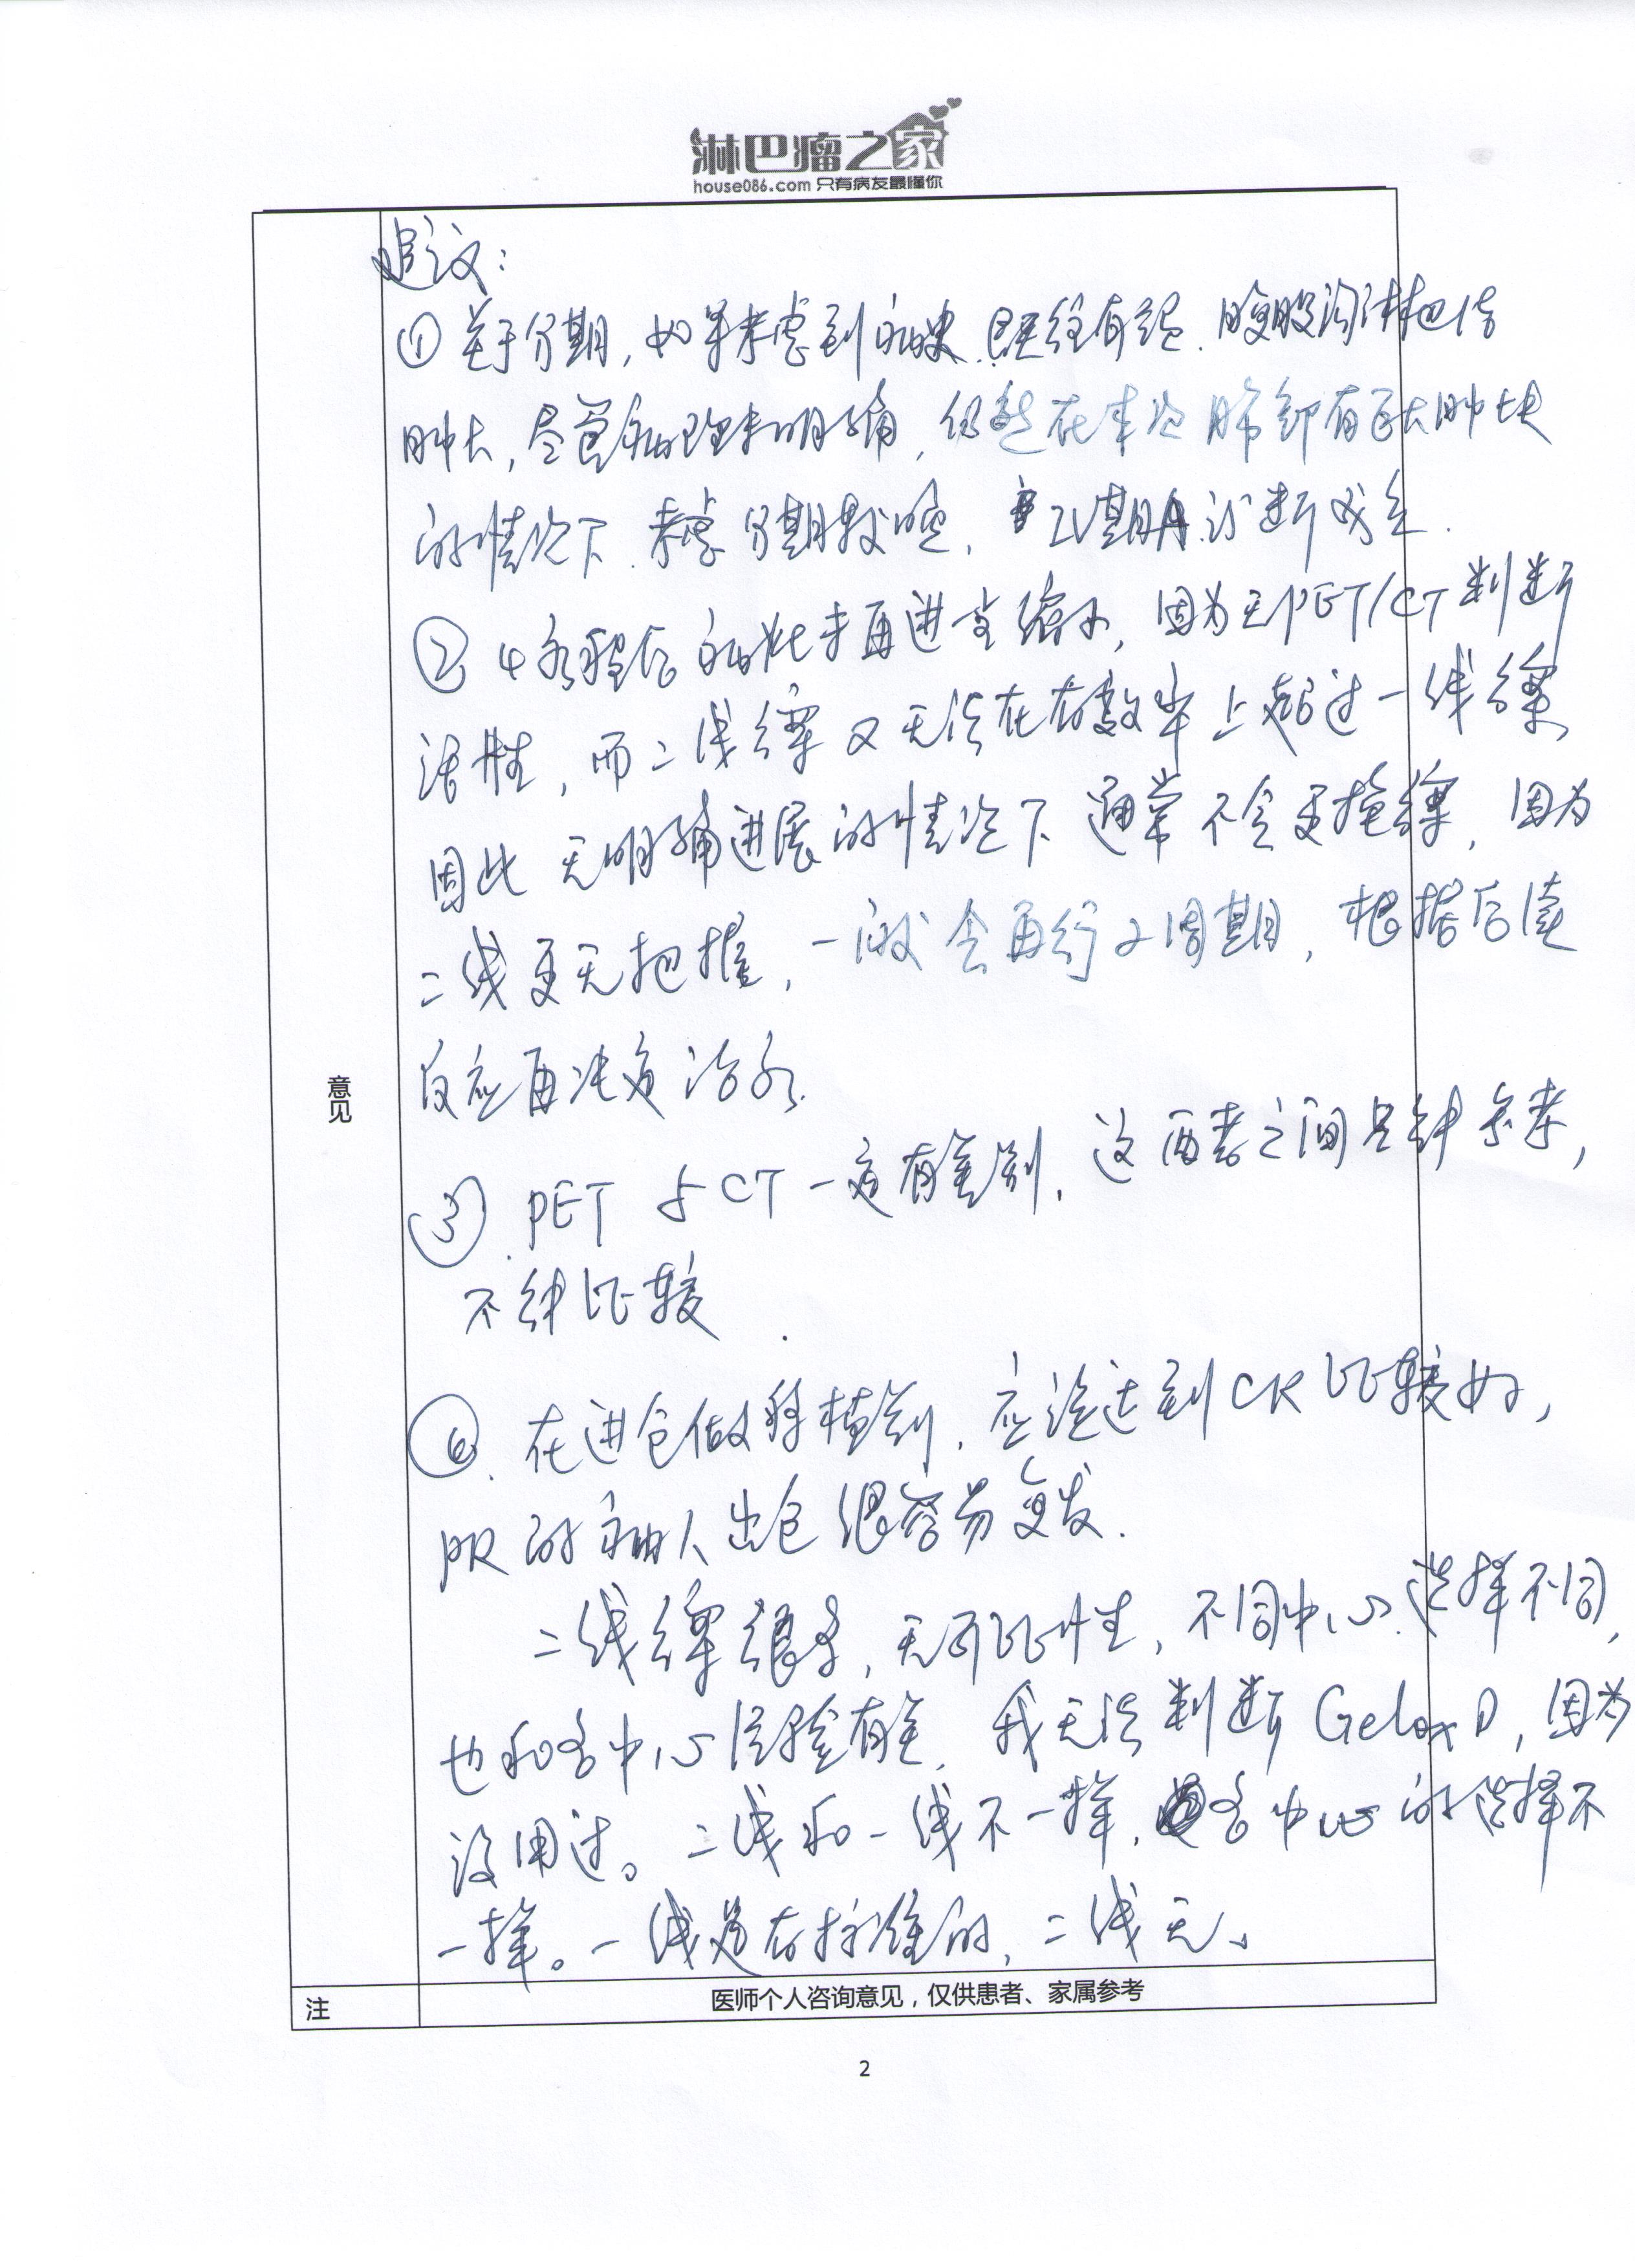 淋巴瘤之家
house086.com 只有病友最懂你
意见
追议:
① 关于分期, 如果考虑到病史. 既往有过. 腹股沟淋巴结
肿大, 尽管病理未明确, 仍然在本次肺部有巨大肿块
的情况下. 考虑分期较晚, Ⅳ期A 诊断成立.
② 4疗程后病灶未再进一步缩小, 因为无PET/CT判断
活性, 而二线方案又无法在有效率上超过一线方案,
因此无明确进展的情况下 通常不会更换方案, 因为
二线更无把握, 一般会再行2周期, 根据后续
反应再决定治疗.
③. PET 与 CT 一定有差别, 这两者之间只能参考,
不能比较.
④. 在进仓做移植前, 应该达到CR比较好,
PR的病人出仓很容易复发.
二线方案很多, 无可比性, 不同中心选择不同,
也和各中心经验有关, 我无法判断GeloxD, 因为
没用过。二线和一线不一样, 各中心的选择不
一样。一线是有标准的, 二线无.
注
医师个人咨询意见，仅供患者、家属参考
2